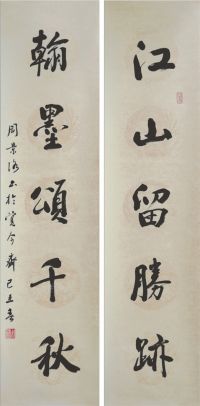 江山留勝跡
翰墨頌千秋
周景洛書於寶今齋己丑春